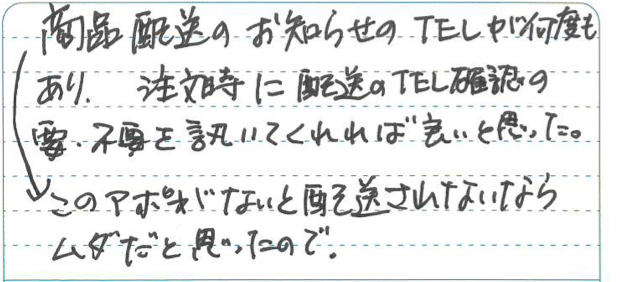 商品配送のお知らせのTELが何度も
あり、注文時に配送のTEL確認の
要・不要を訊いてくれれば良いと思った。
このアポがないと配送されないなら
ムダだと思ったので。